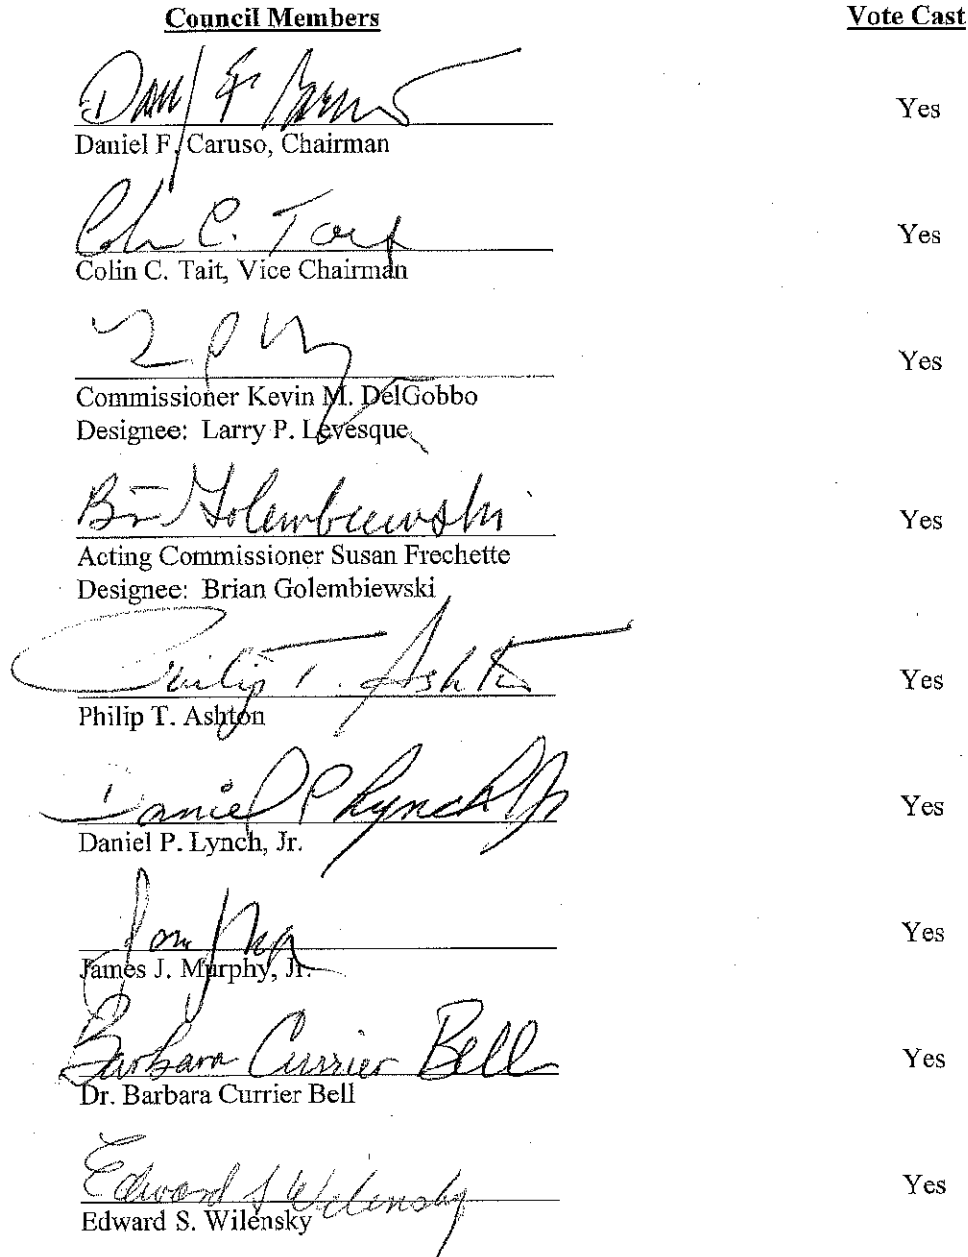 Council Members Vote Cast
Daniel F. Caruso, Chairman Yes
Colin C. Tait
Colin C. Tait, Vice Chairman Yes
Commissioner Kevin M. DelGobbo Yes
Designee: Larry P. Levesque
Golembiewski
Acting Commissioner Susan Frechette Yes
Designee: Brian Golembiewski
Philip T. Ashton
Philip T. Ashton Yes
Daniel P Lynch Jr
Daniel P. Lynch, Jr. Yes
James J. Murphy, Jr. Yes
Barbara Currier Bell
Dr. Barbara Currier Bell Yes
Edward S Wilensky
Edward S. Wilensky Yes